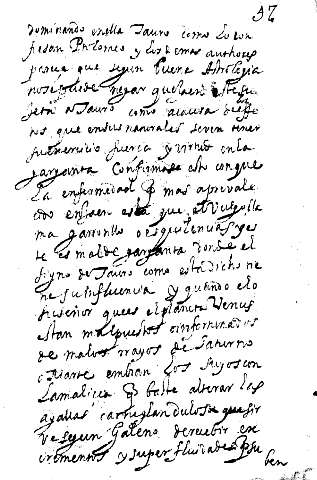 57
dominando en ella Tauro como lo con
fiesan Ptolomeo y los demas authores
parece que segun buena Astrologia
no se puede negar que la en este su
geta a Tauro como a causa de esse
tos, que en sus naturales seren tener
su exercicio fuerza y virtud en la
garganta Confirmase esto con que
la enfermedad q mas a prevale
cido en esta que el vulgo lla
ma garrotillo o esquilencias y es
te es mal de garganta donde el
signo de Tauro como esta dicho tie
ne su influencia y quando el o
su señor que es el planeta Venus
estan mal puestos o infortunados
de malos rayos de Saturno
o Marte embian los suyos con
la malicia q baste alterar las
agallas carregandolas que sir
ve segun Galeno de recebir ex
crementos y superfluidades q su
ben